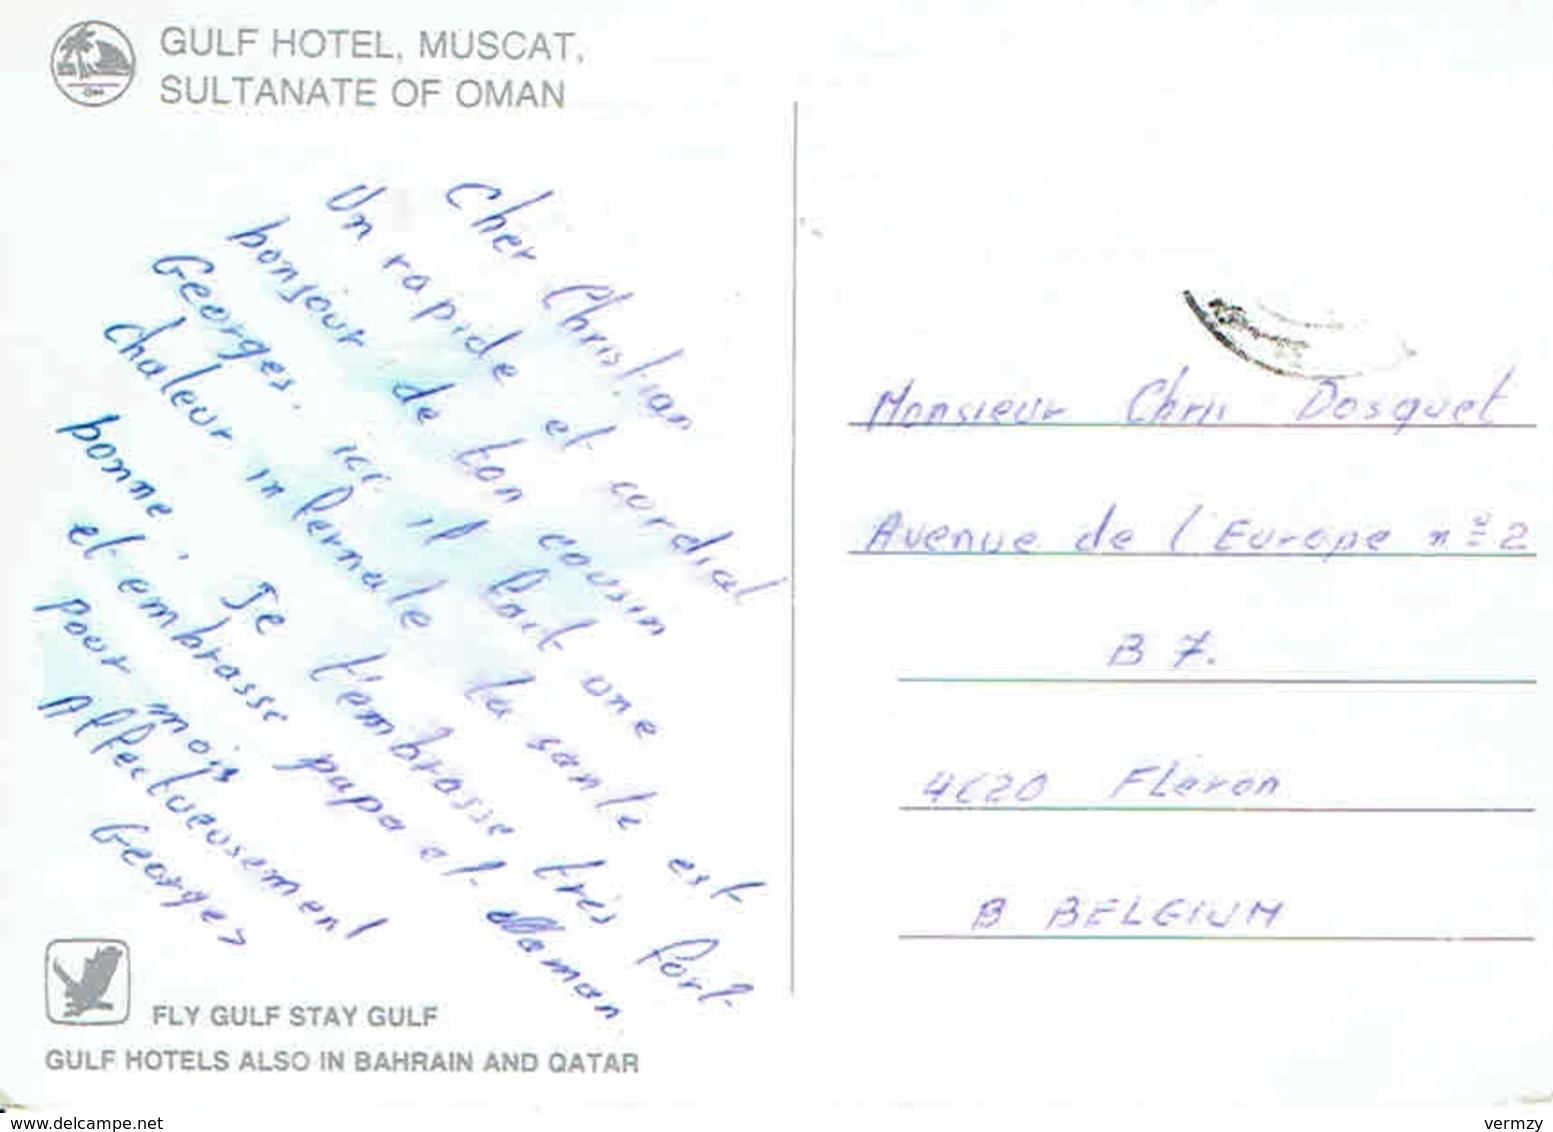 GULF HOTEL, MUSCAT,
SULTANATE OF OMAN
Cher Christian
Un rapide et cordial
bonjour de ton cousin
Georges. ici il fait une
chaleur infernale la santé est
bonne. Je t'embrasse très fort
et embrasse papa et Maman
pour mois
Affectueusement
Georges
FLY GULF STAY GULF
GULF HOTELS ALSO IN BAHRAIN AND QATAR
Monsieur Chris Dosquet
Avenue de l'Europe nº 2
B 7.
4620 Fléron
B. BELGIUM
www.delcampe.net
vermzy